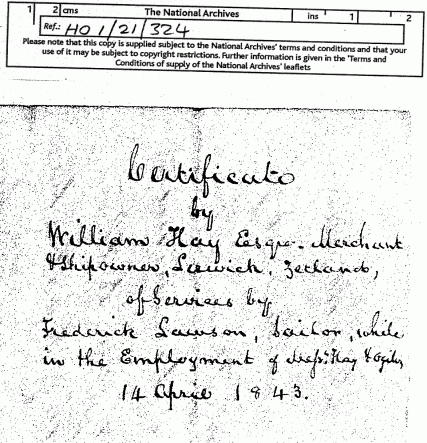 1 2 cms The National Archives ins 1 2
Ref.: HO 1/21/324
Please note that this copy is supplied subject to the National Archives' terms and conditions and that your
use of it may be subject to copyright restrictions. Further information is given in the 'Terms and
Conditions of supply of the National Archives' leaflets
Certificate
by
William Hay Esqre. Merchant
& Shipowner, Lerwick, Zetland,
of Services by
Frederick Lawson, Sailor, while
in the Employment of Messrs: Hay & Ogilvy
14 April 1843.